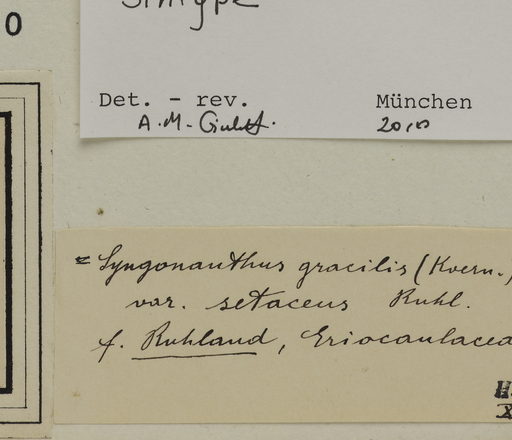 0
Det. - rev. München
A. M. Giulietti. 20,00
= Syngonanthus gracilis (Koern.)
var. setaceus Ruhl.
f. Ruhland, Eriocaulacea